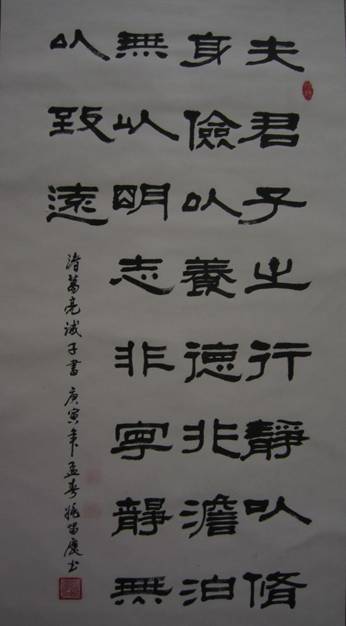 夫君子之行靜以脩
身儉以養德非澹泊
無以明志非寧靜無
以致遠
诸葛亮诫子書 庚寅年孟春